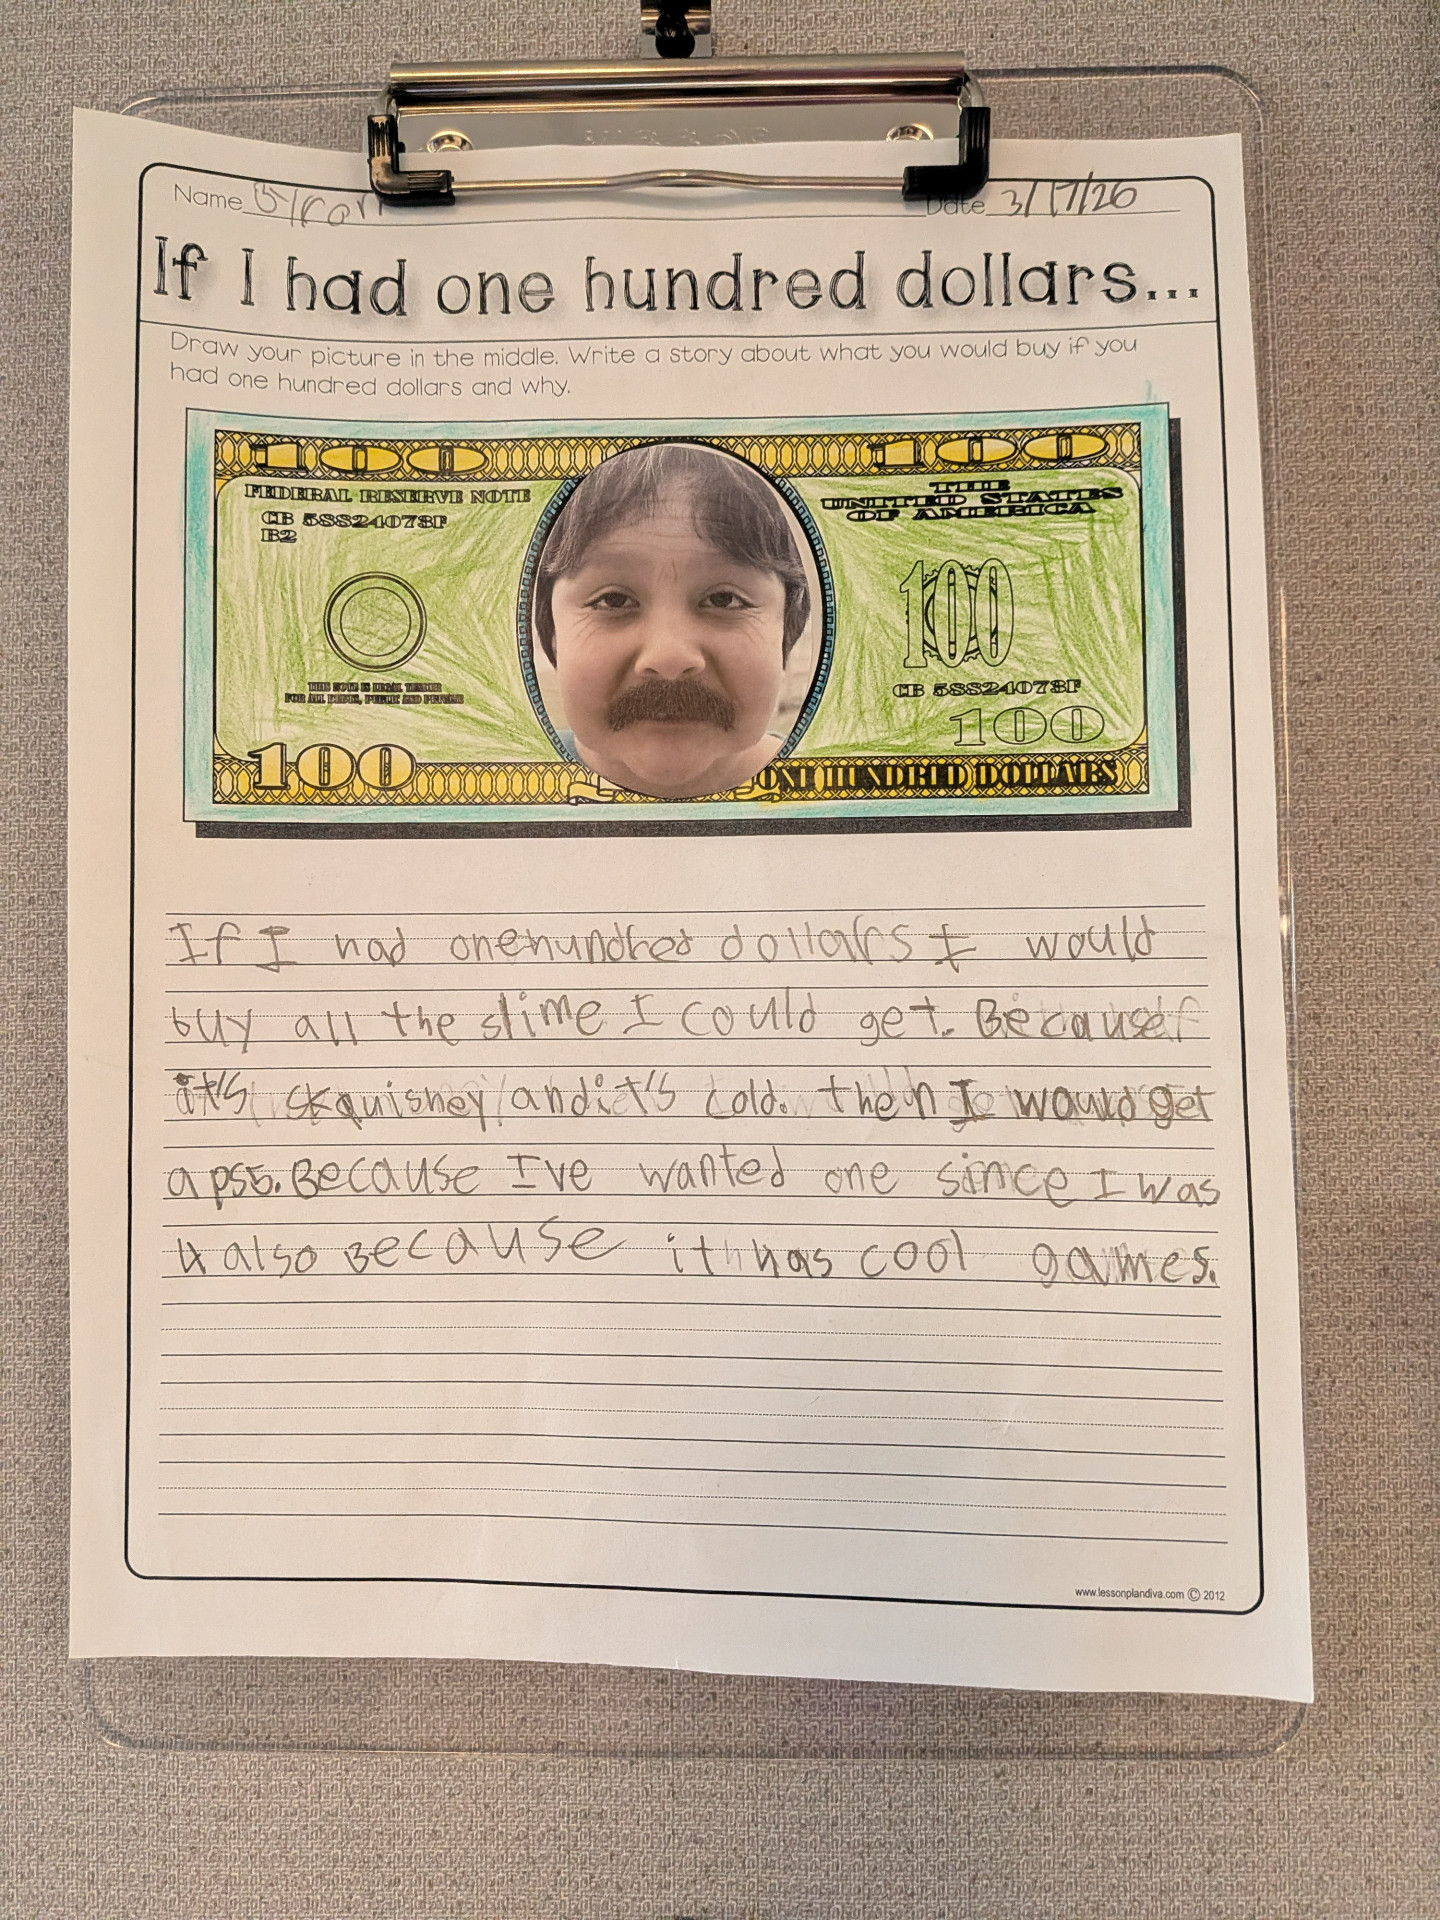 Name
Date 3/17/26
If I had one hundred dollars...
Draw your picture in the middle. Write a story about what you would buy if you
had one hundred dollars and why.
100 100
FEDERAL RESERVE NOTE
CB 58824073F
B2
THE
UNITED STATES
OF AMERICA
100
THIS NOTE IS LEGAL TENDER
FOR ALL DEBTS, PUBLIC AND PRIVATE
CB 58824073F
100
100
ONE HUNDRED DOLLARS
If I had onehundred dollars I would
buy all the slime I could get. Because
it's skquishey and it's cold. then I would get
a ps5. Because I've wanted one since I was
4 also Because it has cool games.
www.lessonplandiva.com © 2012